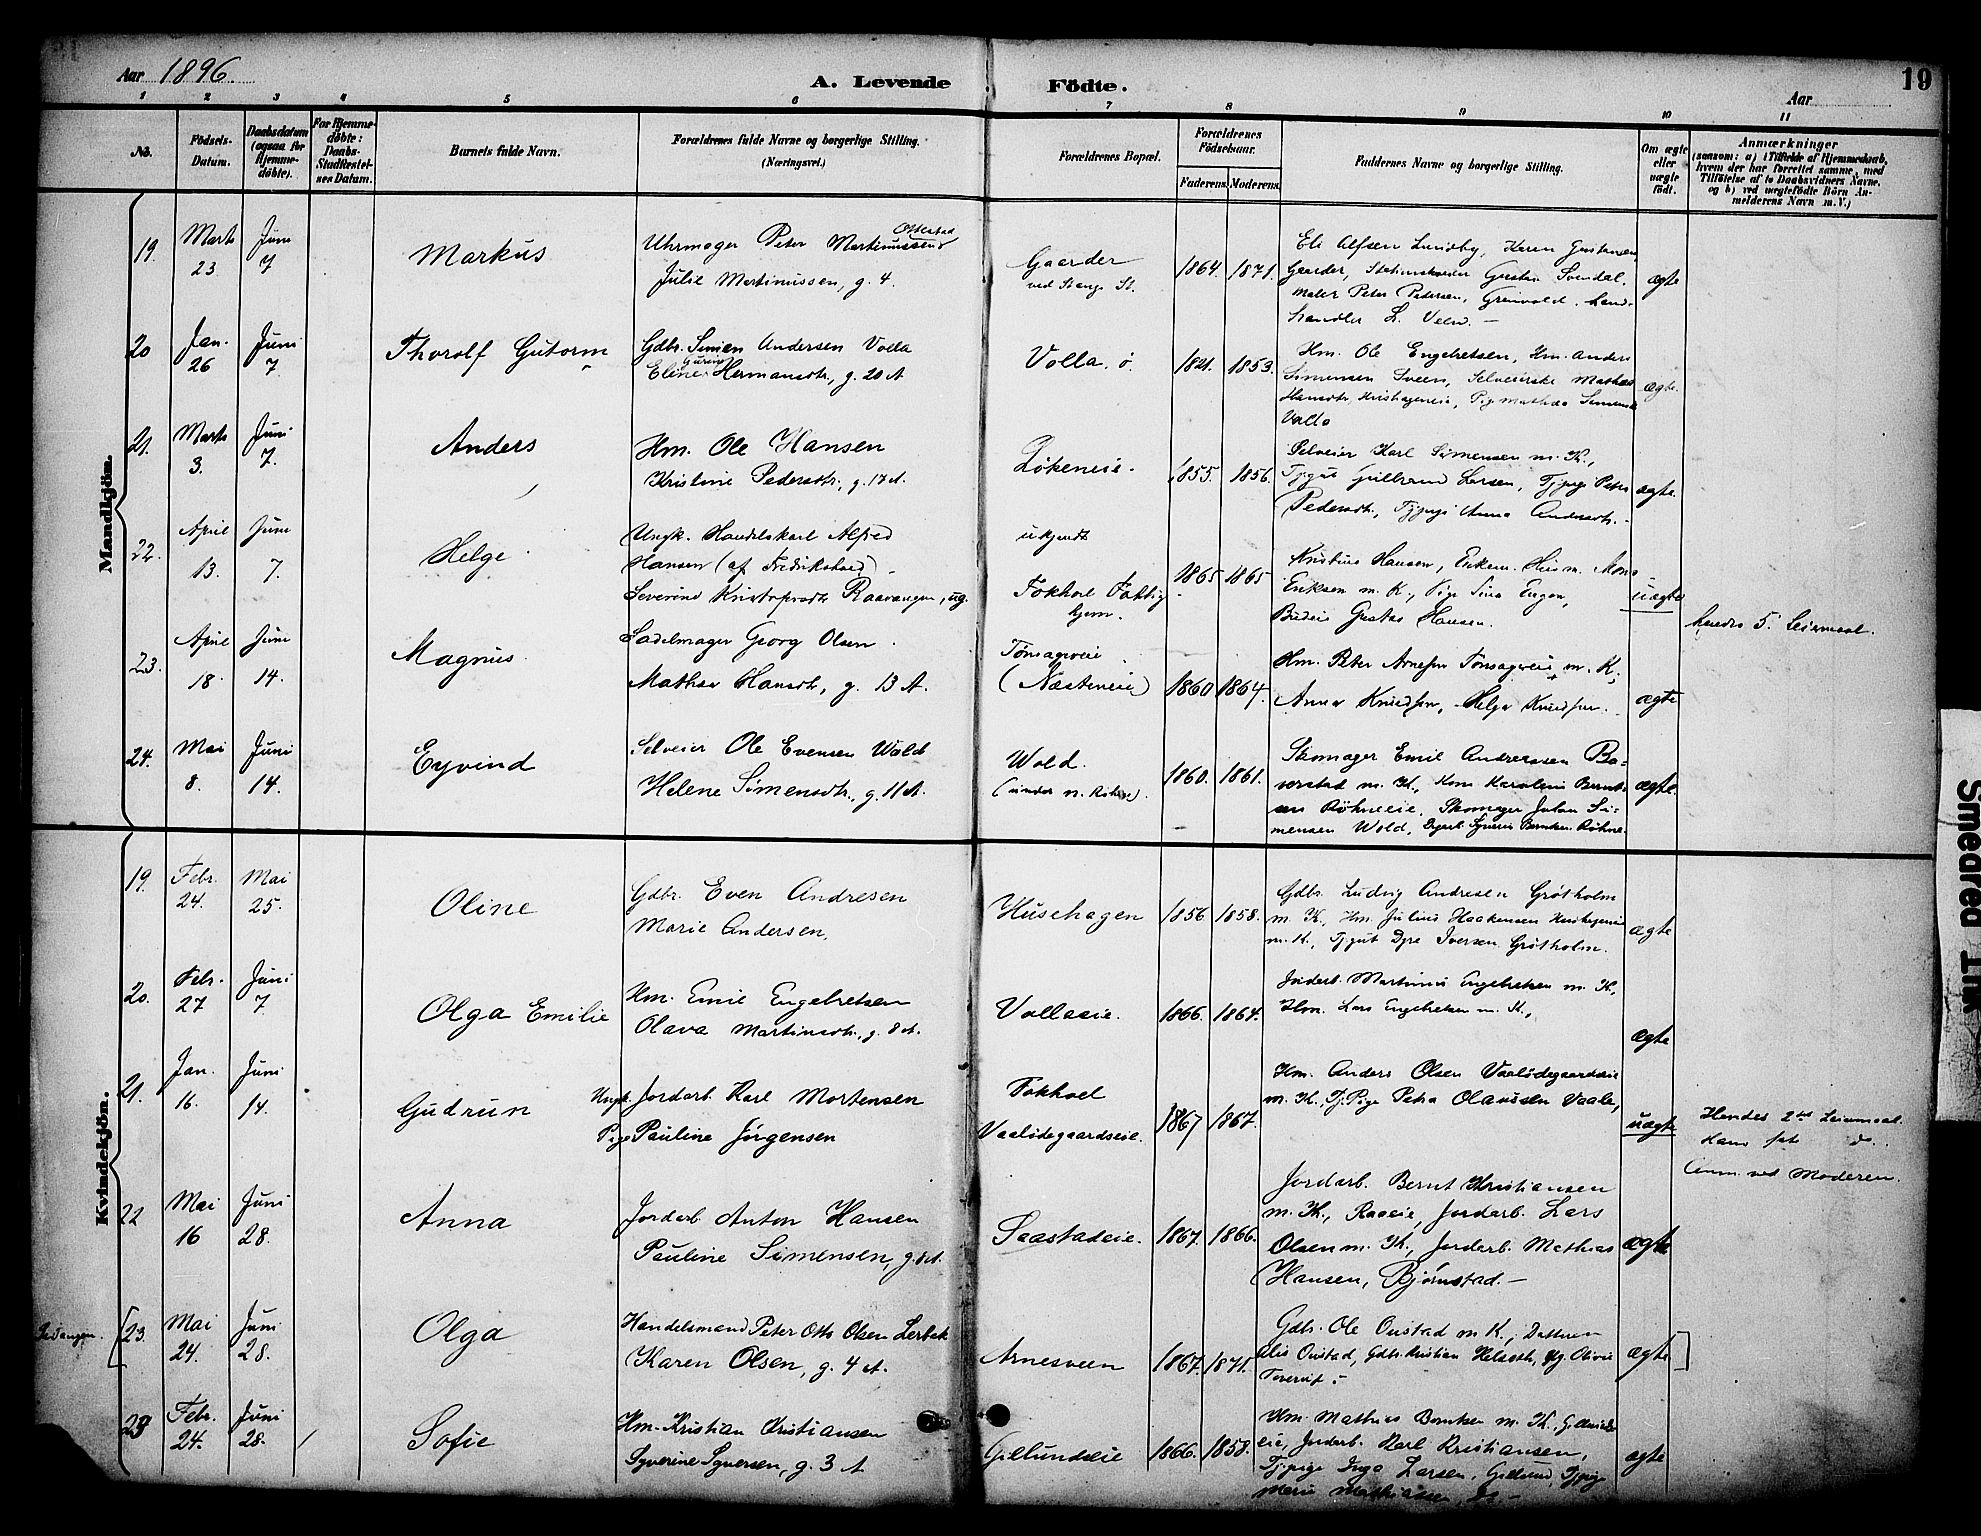 Aar 1896.
A. Levende Födte.
19
Aar
1 2 3 4 5 6 7 8 9 10 11
No.
Födsels-Datum.
Daabsdatum (ogsaa for Hjemme-döbte).
For Hjemme-döbte: Daabs-Stadfæstel-ses Datum.
Barnets fulde Navn.
Forældrenes fulde Navne og borgerlige Stilling.
(Næringsvei.)
Forældrenes Bopæl.
Forældrenes Födselsaar.
Faderens. Moderens.
Faddernes Navne og borgerlige Stilling.
Om ægte eller uægte födt.
Anmærkninger
(saasom: a) i Tilfælde af Hjemmedaab, hvem der har forrettet samme, med Tilföielse af to Daabsvidners Navne, og b) ved uægtefödte Börn An-melderens Navn m.V.)
Mandkjön.
19. Marts 23 Juni 7 Markus
Uhrmager Peter Martinussen Ottestad
Julie Martinussen, g. 4.
Gaarder
ved Stange St.
1864. 1871.
Eli Alfsen Lundby, Karen Gustavsen
Gaarder, Gustav Svendal,
Maler Peter Pedersen, Grönvold, Land-
handler L. Veen. —
ægte
20 Jan. 26 Juni 7. Thorolf Gutorm
Gdbr. Simen Andersen Volla
Eline Hermansdtr, g. 20 A
Volla. ö.
1821. 1853.
Hm. Ole Engebretsen, Hm. Anders
Simensen Sveen, Selveierske Mathea
Hansdtr, Pige Mathea Simensd
Valla
ægte.
21. Marts 3. Juni 7. Anders
Hm. Ole Hansen
Kristine Pedersdtr., g. 17 A.
Lökeneie.
1855. 1856.
Selveier Karl Simensen m. K.,
Tjgut Gulbrand Larsen, Tjpige Petra
Pedersdtr, Tjpige Anna Andersdtr. -
ægte.
22. April 13. Juni 7. Helge
Ungk. Handelskarl Alfred
Hansen (af Fredrikshald).
Severine Kristofersdtr Raavangen, ug.
ukjendt
Tokhol Fattig
hjem.
1865 1865
Kristine Hansen, Husm. Mons
Eriksen m. K., Pige Sina Engen,
Budeie Gustava Hansen.
uægte
hendes 5. Leiermaal.
23. April 18. Juni 14. Magnus.
Sadelmager Georg Olsen
Mathea Hansdtr, g. 13 A.
Tomsagereie
(Næsteneie)
1860 1864.
Hm. Peter Arnesen Tomsagereie m. K.,
Anna Knudsen, Helga Knudsen.
ægte
24. Mai 8. Juni 14. Eyvind
Selveier Ole Evensen Wold
Helene Simensdtr., g. 11 A.
Wold.
(under n. Röhne).
1860. 1861.
Skomager Emil Andreassen Bo-
verstad m. K., Kone Karoline Bernt-
sen Röhneeie, Skomager Johan Si-
mensen Wold, Berntsen Röhne.
ægte.
Kvindekjön.
19. Febr. 24. Mai 25. Oline
Gdbr. Even Andresen
Marie Andersen,
Husehagen
1856 1858.
Gdbr. Ludvig Andresen Grötholm
m. K., Hm. Julius Haakensen Husehageneie
m. K., Tjgut Dyre Iversen Grötholm.
ægte
20. Febr. 27 Juni 7 Olga Emilie
Hm. Emil Engebretsen
Olava Martinsdtr., g. 8 A.
Vollaeie.
1866. 1864.
Jordarb. Martinus Engebretsen m. K.,
Hm. Lars Engebretsen m. K.,
ægte
21. Jan. 16. Juni 14. Gudrun
Ungk. Jordarb. Karl Mortensen
Pige Pauline Jörgensen
Tokhoel
Vaalidegaardseie.
1867 1867.
Hm. Anders Olsen Vaalidegaardseie
m. K., Tj. Pige Petra Olaussen Vaale,
uægte
Hendes 2det Leiermaal.
Hans 1ste do.
Anm. ved Moderen.
22 Mai 16 Juni 28. Anna
Jordarb. Anton Hansen
Pauline Simensen, g. 8 A.
Saastadeie.
1867. 1866.
Jordarb. Bernt Kristiansen
m. K., Raaeie, Jordarb. Lars
Olsen m. K., Jordarb. Mathias
Hansen, Björnstad. —
ægte
23. Mai 24. Juni 28. Olga
Handelsmand Peter Otto Olsen Lerbæk
Karen Olsen, g. 4 A.
Arnesveen
1867. 1871.
Gdbr. Ole Oustad m. K., Datteren
Oustad, Gdbr. Kristian Helseth, Olivie
ægte
Febr. 24. Juni 28. Sofie
Hm. Kristian Kristiansen
Syverine Syversen, g. 3 A
Gillundseie
1866. 1858.
Hm. Mathias Berntsen m. K., Gillunds
eie, Jordarb. Karl Kristiansen,
Tjpige Inga Larsen, Gillund, Tjpige
Marie Mathiassen, do. —
ægte
Smeared Ink